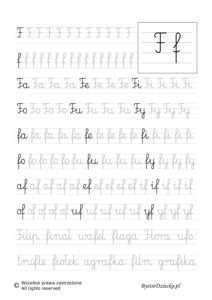 F F F F F F F F F F F F F
F f
f f f f f f f f f f f f f
Fa Fa Fa Fa Fe Fe Fe Fe Fi Fi Fi Fi Fi
Fo Fo Fo Fo Fu Fu Fu Fu Fy Fy Fy Fy
fa fa fa fa fa fe fe fe fe fe fi fi fi fi
fo fo fo fo fo fu fu fu fu fy fy fy fy
af af af af af ef ef ef ef ef if if if if
of of of of of uf uf uf uf uf yf yf yf yf
Filip finał wafel flaga Flora ufo
trufle fiołek agrafka film grafika
© Wszelkie prawa zastrzeżone
All rights reserved
BystreDziecko.pl